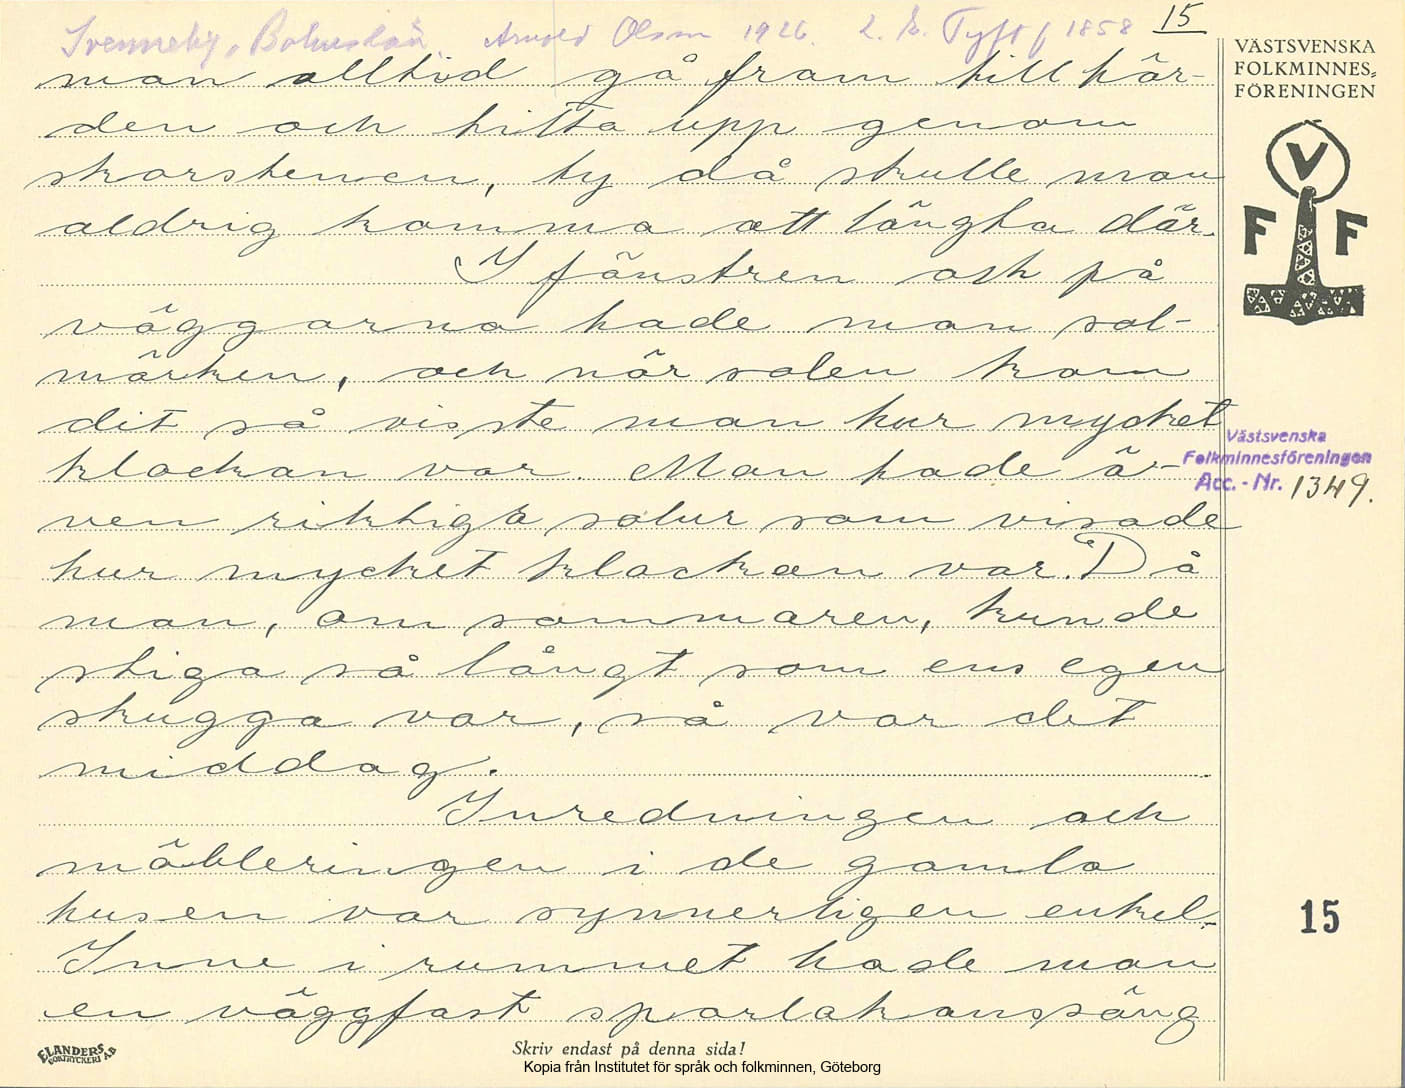 Svenneby, Bohuslän. Arnold Olsson 1926. 15
man alltid gå fram till här-
den och titta upp genom
skorstenen, ty då skulle man
aldrig komma att längta där.
I fönstren och på
väggarna hade man sol-
märken, och när solen kom
dit så visste man hur mycket
klockan var. Man hade ä-
ven riktiga solur som visade
hur mycket klockan var. Då
man, om sommaren, kunde
stiga så långt som ens egen
skugga var, så var det
middag.
Inredningen och
möbleringen i de gamla
husen var synnerligen enkel.
Inne i rummet hade man
en väggfast sparlakanssäng
VÄSTSVENSKA
FOLKMINNES-
FÖRENINGEN
V
F F
Västsvenska
Folkminnesföreningen
Acc. - Nr. 1349.
15
ELANDERS
BOKTRYCKERI AB
Skriv endast på denna sida!
Kopia från Institutet för språk och folkminnen, Göteborg